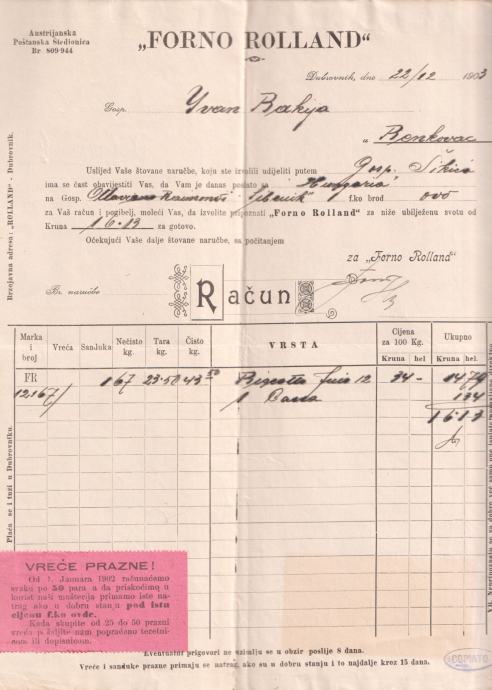 Austrijanska
Poštanska Štedionica
Br 809·944
„FORNO ROLLAND“
Dubrovnik, dne 22/12 1903
Gosp. Yvan Bakija
u Benkovac
Uslijed Vaše štovane naručbe, koju ste izvolili udijeliti putem Gosp. Šikića
ima se čast obavijestiti Vas, da Vam je danas poslato sa „Hungaria“
na Gosp. Šibenik f.ko brod ovo
za Vaš račun i pogibelj, moleći Vas, da izvolite pripoznati „Forno Rolland“ za niže ubilježenu svotu od
Kruna 16·13 za gotovo.
Očekujući Vaše dalje štovane naručbe, sa počitanjem
za „Forno Rolland“
Brzojavna adresa: „ROLLAND“ - Dubrovnik.
Br. naručbe
Račun
Marka i broj
Vreća
Sanduka
Nečisto kg.
Tara kg.
Čisto kg.
VRSTA
Cijena za 100 Kg.
Kruna hel
Ukupno
Kruna hel.
FR 1 67 23·50 43 50 Biscotto 12 34 - 14 79
12167/ 1 Cassa 1 34
16 13
Plaća se i tuži u Dubrovniku.
VREĆE PRAZNE!
Od 1. Januara 1902 računaćemo
svaku po 50 para a da priskočimo u
korist naših mušterija primamo iste na-
trag ako u dobru stanju pod istu
cijenu f.ko ovde.
Kada skupite od 25 do 50 prazni
vreća pošljite nam popraćeno teretni-
com ili dopisnicom.
Eventualni prigovori ne uzimlju se u obzir poslije 8 dana.
Vreće i sanduke prazne primaju se natrag, ako su u dobru stanju i to najdalje kroz 15 dana.
COPIATO